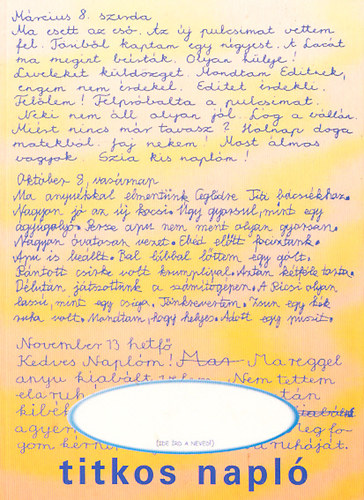 Március 8. szerda
Ma esett az eső. Az új pulcsimat vettem
fel. Töriből kaptam egy négyest. A Lacát
ma megint beírták. Olyan hülye!
Levelekét küldözget. Mondtam Editnek,
engem nem érdekel. Editet érdekli.
Felőlem! Felpróbálta a pulcsimat.
Neki nem áll olyan jól. Lóg a vállán.
Miért nincs már tavasz? Holnap doga
matekból. Jaj nekem! Most álmos
vagyok. Szia kis naplóm!
Október 8, vasárnap
Ma anyuékkal elmentünk Ceglédre Titi bácsiékhoz.
Nagyon jó az új kocsi. Úgy gyorsul, mint egy
ágyúgolyó. Persze apu nem ment olyan gyorsan.
Nagyon óvatosan vezet. Ebéd előtt fociztunk.
Apu is beállt. Bal lábbal lőttem egy gólt.
Rántott csirke volt krumplival. Aztán kétféle torta.
Délután játszottunk a számítógépen. A Pircsi olyan
lassú, mint egy csiga. Tönkrevertem. Zsun egy kék
ruha volt. Mondtam, hogy helyes. Adott egy puszit.
November 13 hétfő
Kedves Naplóm! Mar Mareggel
anyu kiabált velem. Nem tettem
el a ruh tán
kibék
agyem meg fo-
gom kérni ruháját.
(IDE ÍRD A NEVED!)
titkos napló